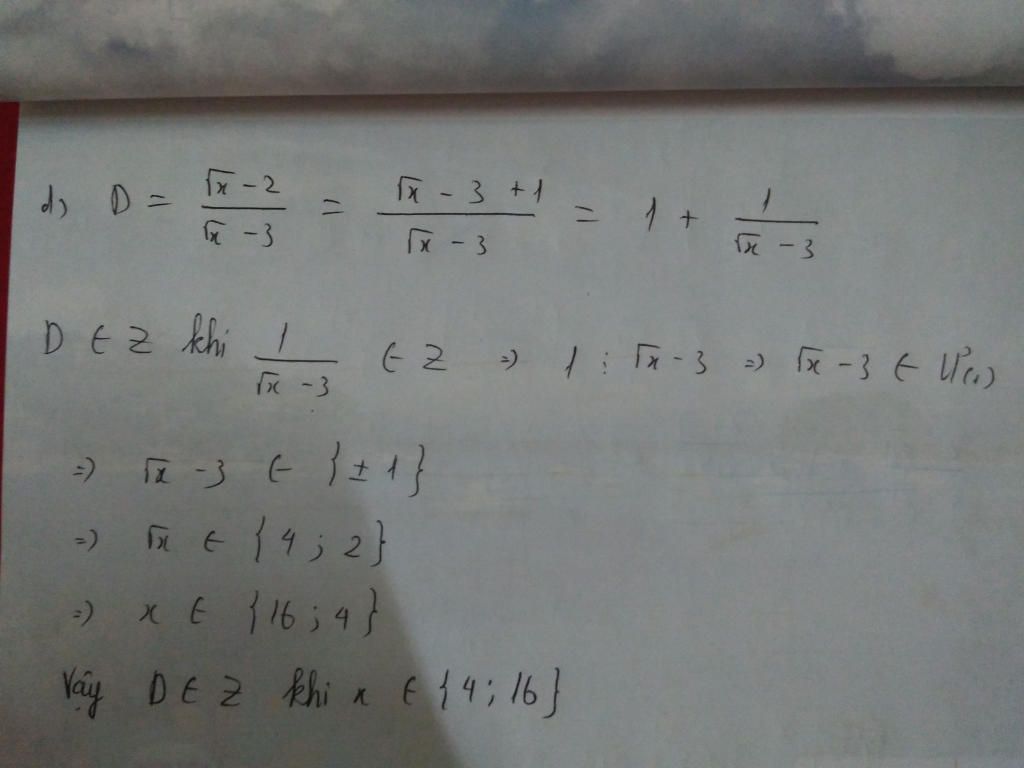 d, D = (√x - 2)/(√x - 3) = (√x - 3 + 1)/(√x - 3) = 1 + 1/(√x - 3)
D ∈ Z khi 1/(√x - 3) ∈ Z => 1 ⋮ √x - 3 => √x - 3 ∈ Ư(1)
=> √x - 3 ∈ {± 1}
=> √x ∈ {4 ; 2}
=> x ∈ {16 ; 4}
Vậy D ∈ Z khi x ∈ {4 ; 16}